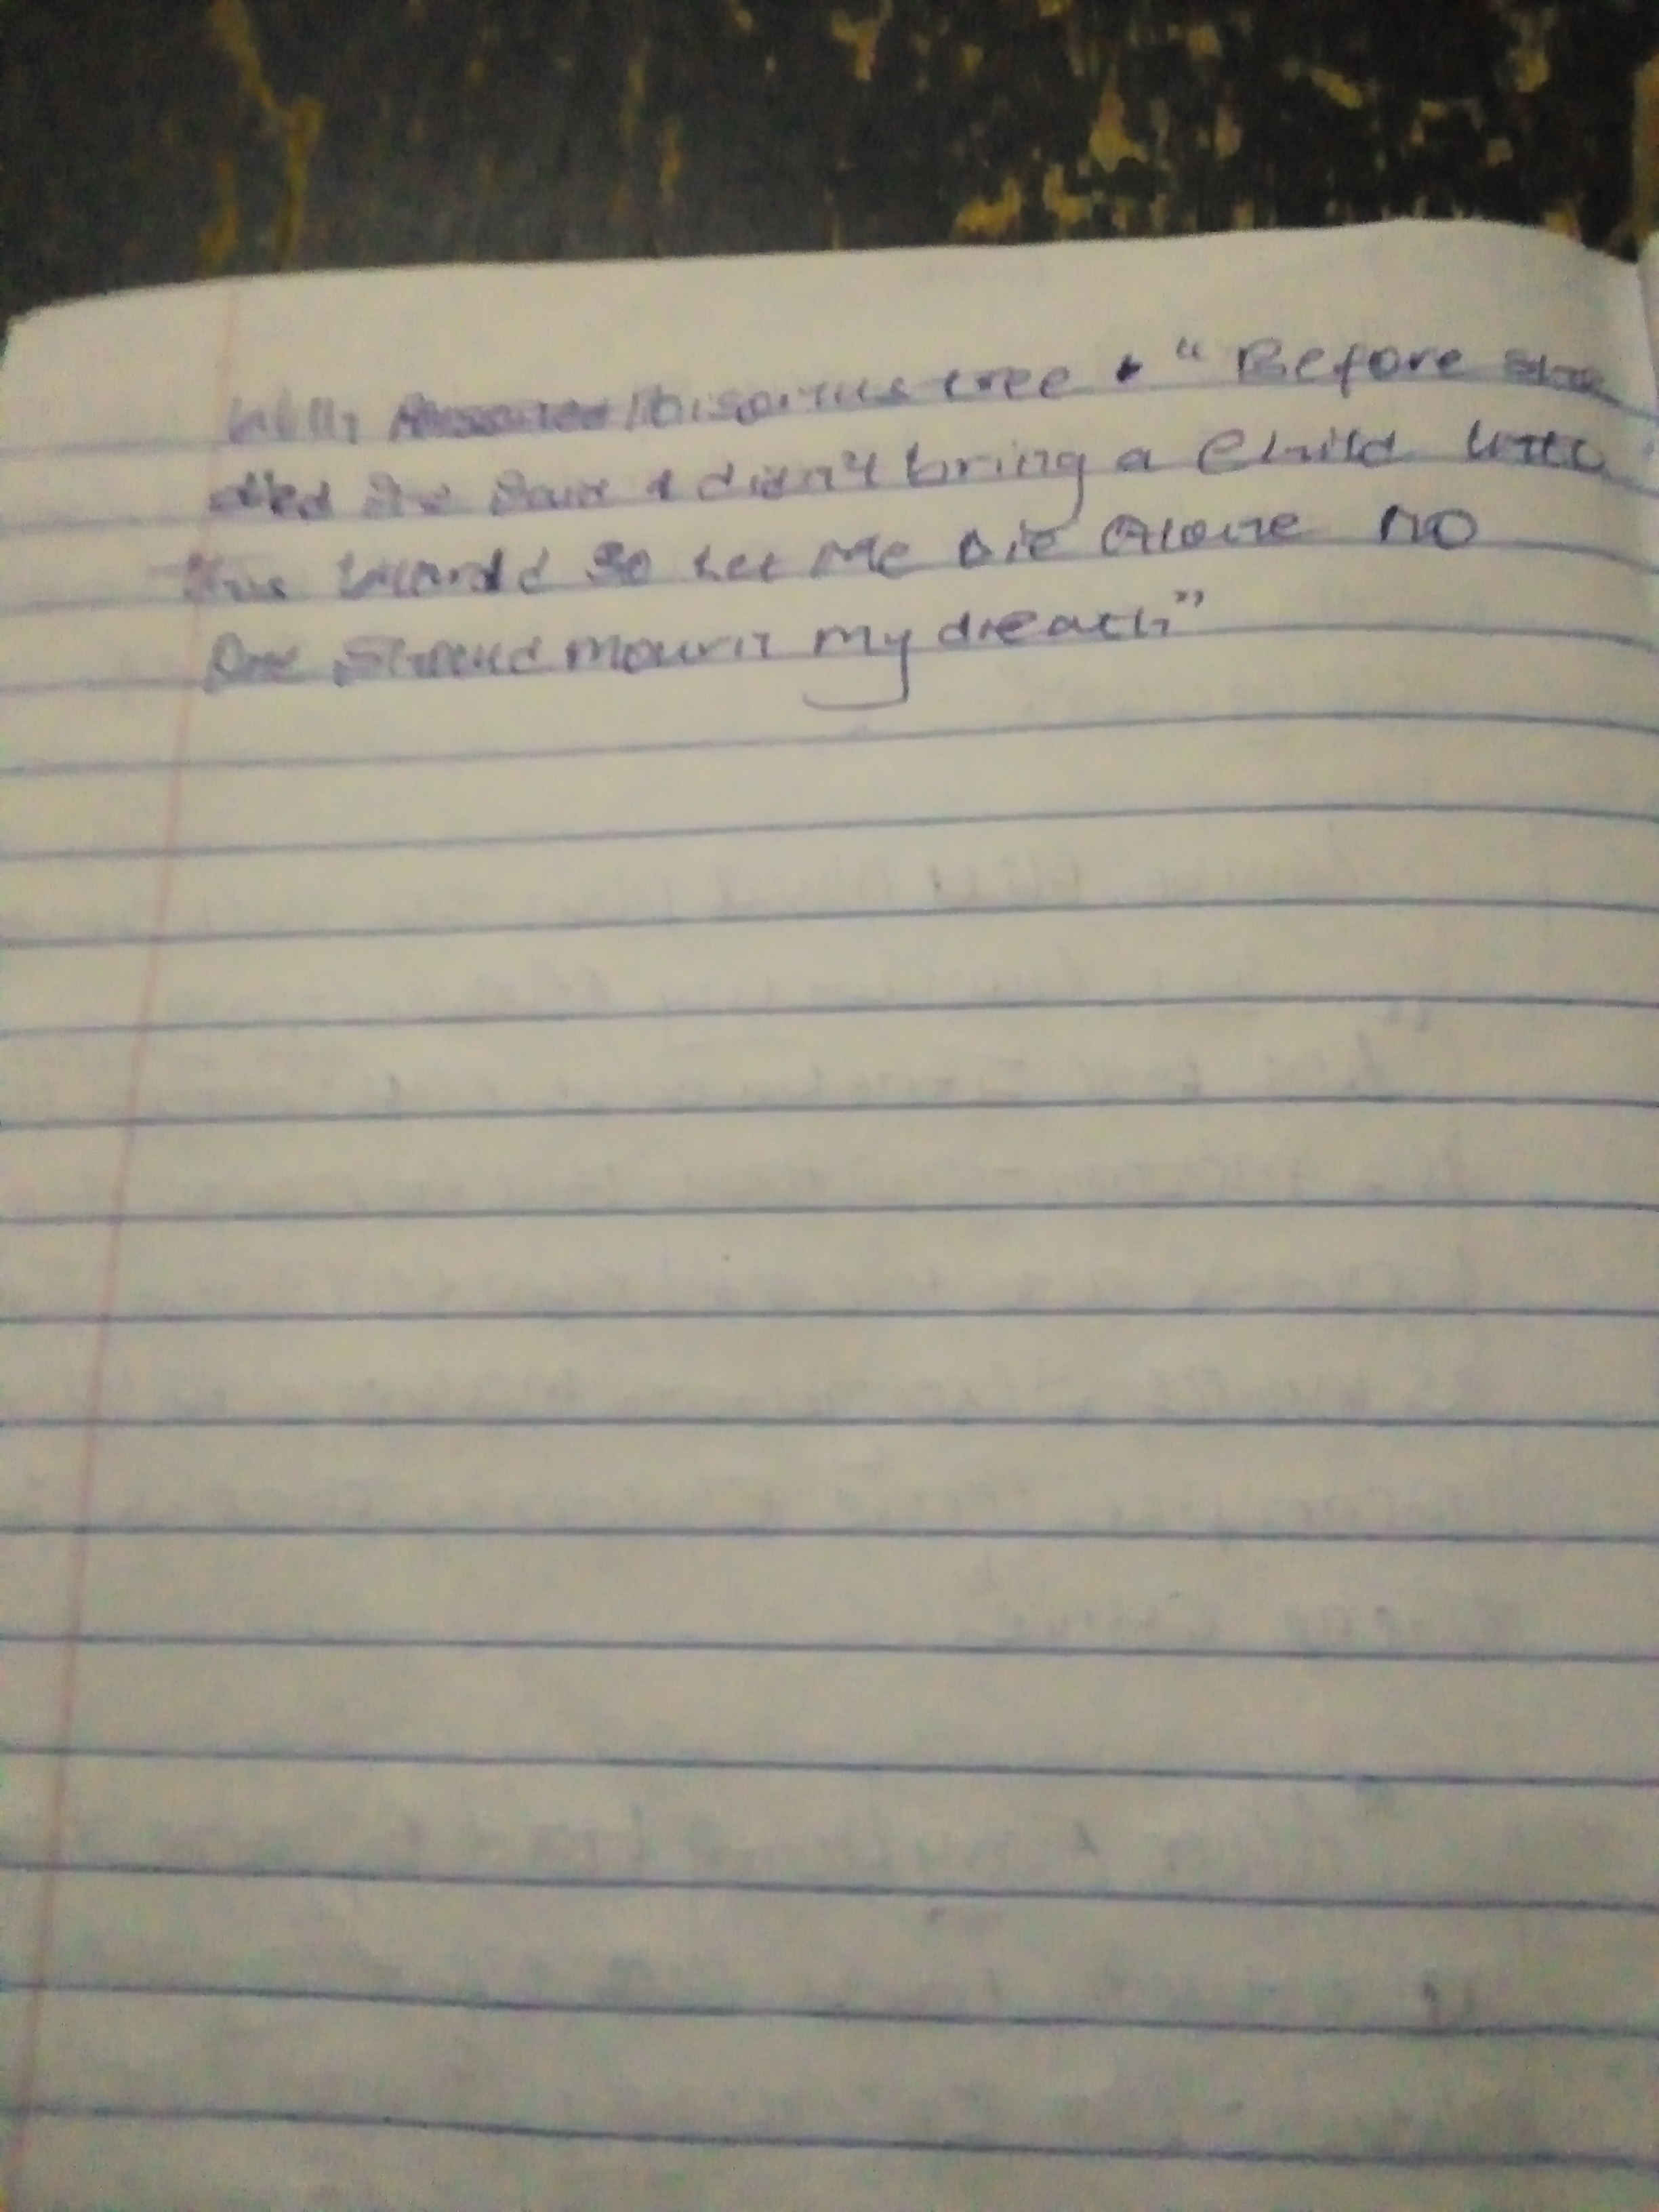 with Poisonus tree. "Before she
died she said I didn't bring a child into
this world so Let Me Die Alone NO
One Should mourn my dreath"